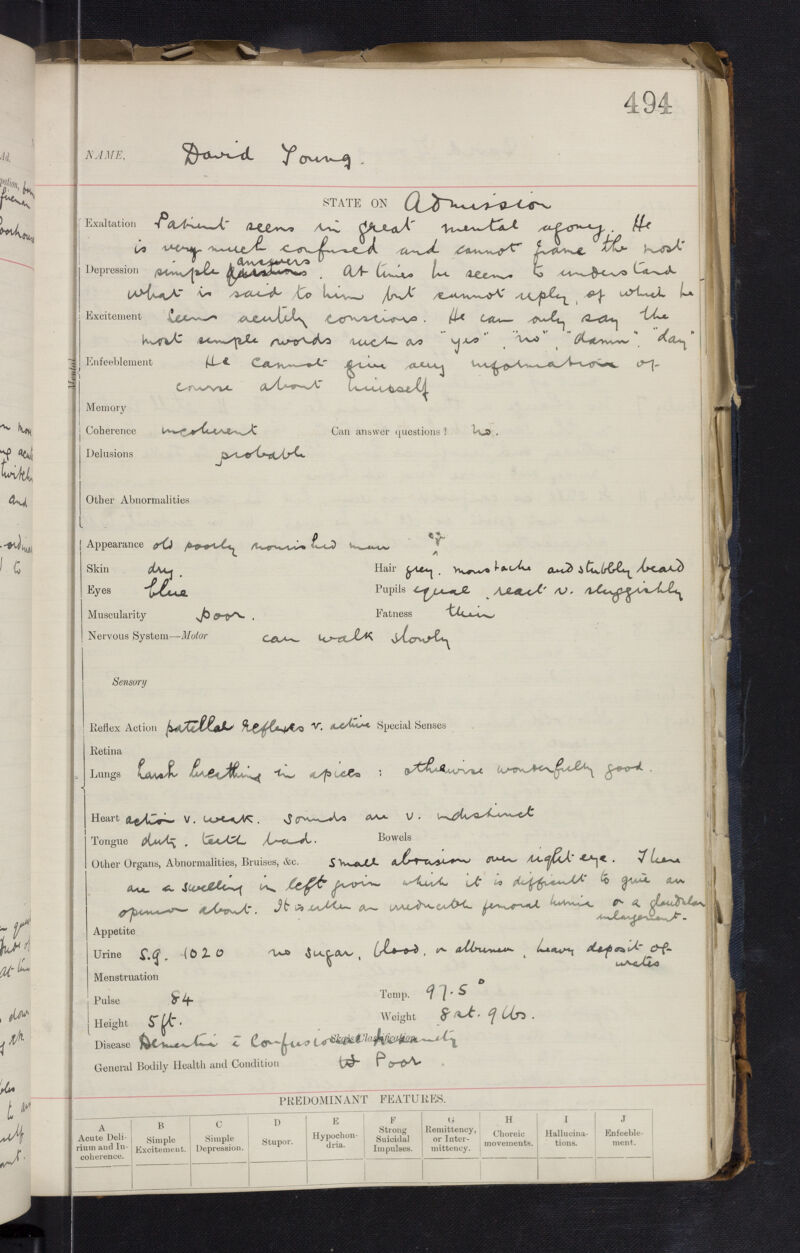 494
NAME, David Young.
STATE ON Admission
Exaltation Patient seems in great mental agony. He
is very much confused and cannot frame the most
answers
Depression simple questions. At times he seems to understand
what is said to him but cannot reply, of which he
Excitement seems acutely conscious. He can only say the
most simple words such as "yes", "no", "damn", "day"
Enfeeblement He cannot give any information of
course about himself
Mental
Memory
Coherence incoherent Can answer questions? no.
Delusions probable
Other Abnormalities
Appearance old poorly nourished man
Skin dry. Hair grey. moustache and stubbly beard
Eyes blue Pupils equal, react v. sluggishly
Muscularity poor. Fatness thin
Nervous System—Motor can walk slowly
Sensory
Reflex Action patellar reflexes v. active Special Senses
Retina
Lungs harsh breathing in apices : otherwise wonderfully good.
Heart action v. weak. Sounds are v. indistinct
Tongue dirty. teeth bad. Bowels
Other Organs, Abnormalities, Bruises, &c. Small abrasion over right eye. There
are a swelling in left groin which it is difficult to give an
opinion about. It is either an irreducible femoral hernia or a glandular
enlargement.
Appetite
Urine S.g. 1020 no sugar, blood, or albumen, heavy deposit of
urates
Menstruation
Pulse 84 Temp. 97.5°
Height 5ft. Weight 8st. 9lbs.
Disease Dementia c̄ Confusional Insanity
General Bodily Health and Condition Poor
PREDOMINANT FEATURES.
A Acute Delirium and Incoherence.
B Simple Excitement.
C Simple Depression.
D Stupor.
E Hypochondria.
F Strong Suicidal Impulses.
G Remittency, or Intermittency.
H Choreic movements.
I Hallucinations.
J Enfeeblement.